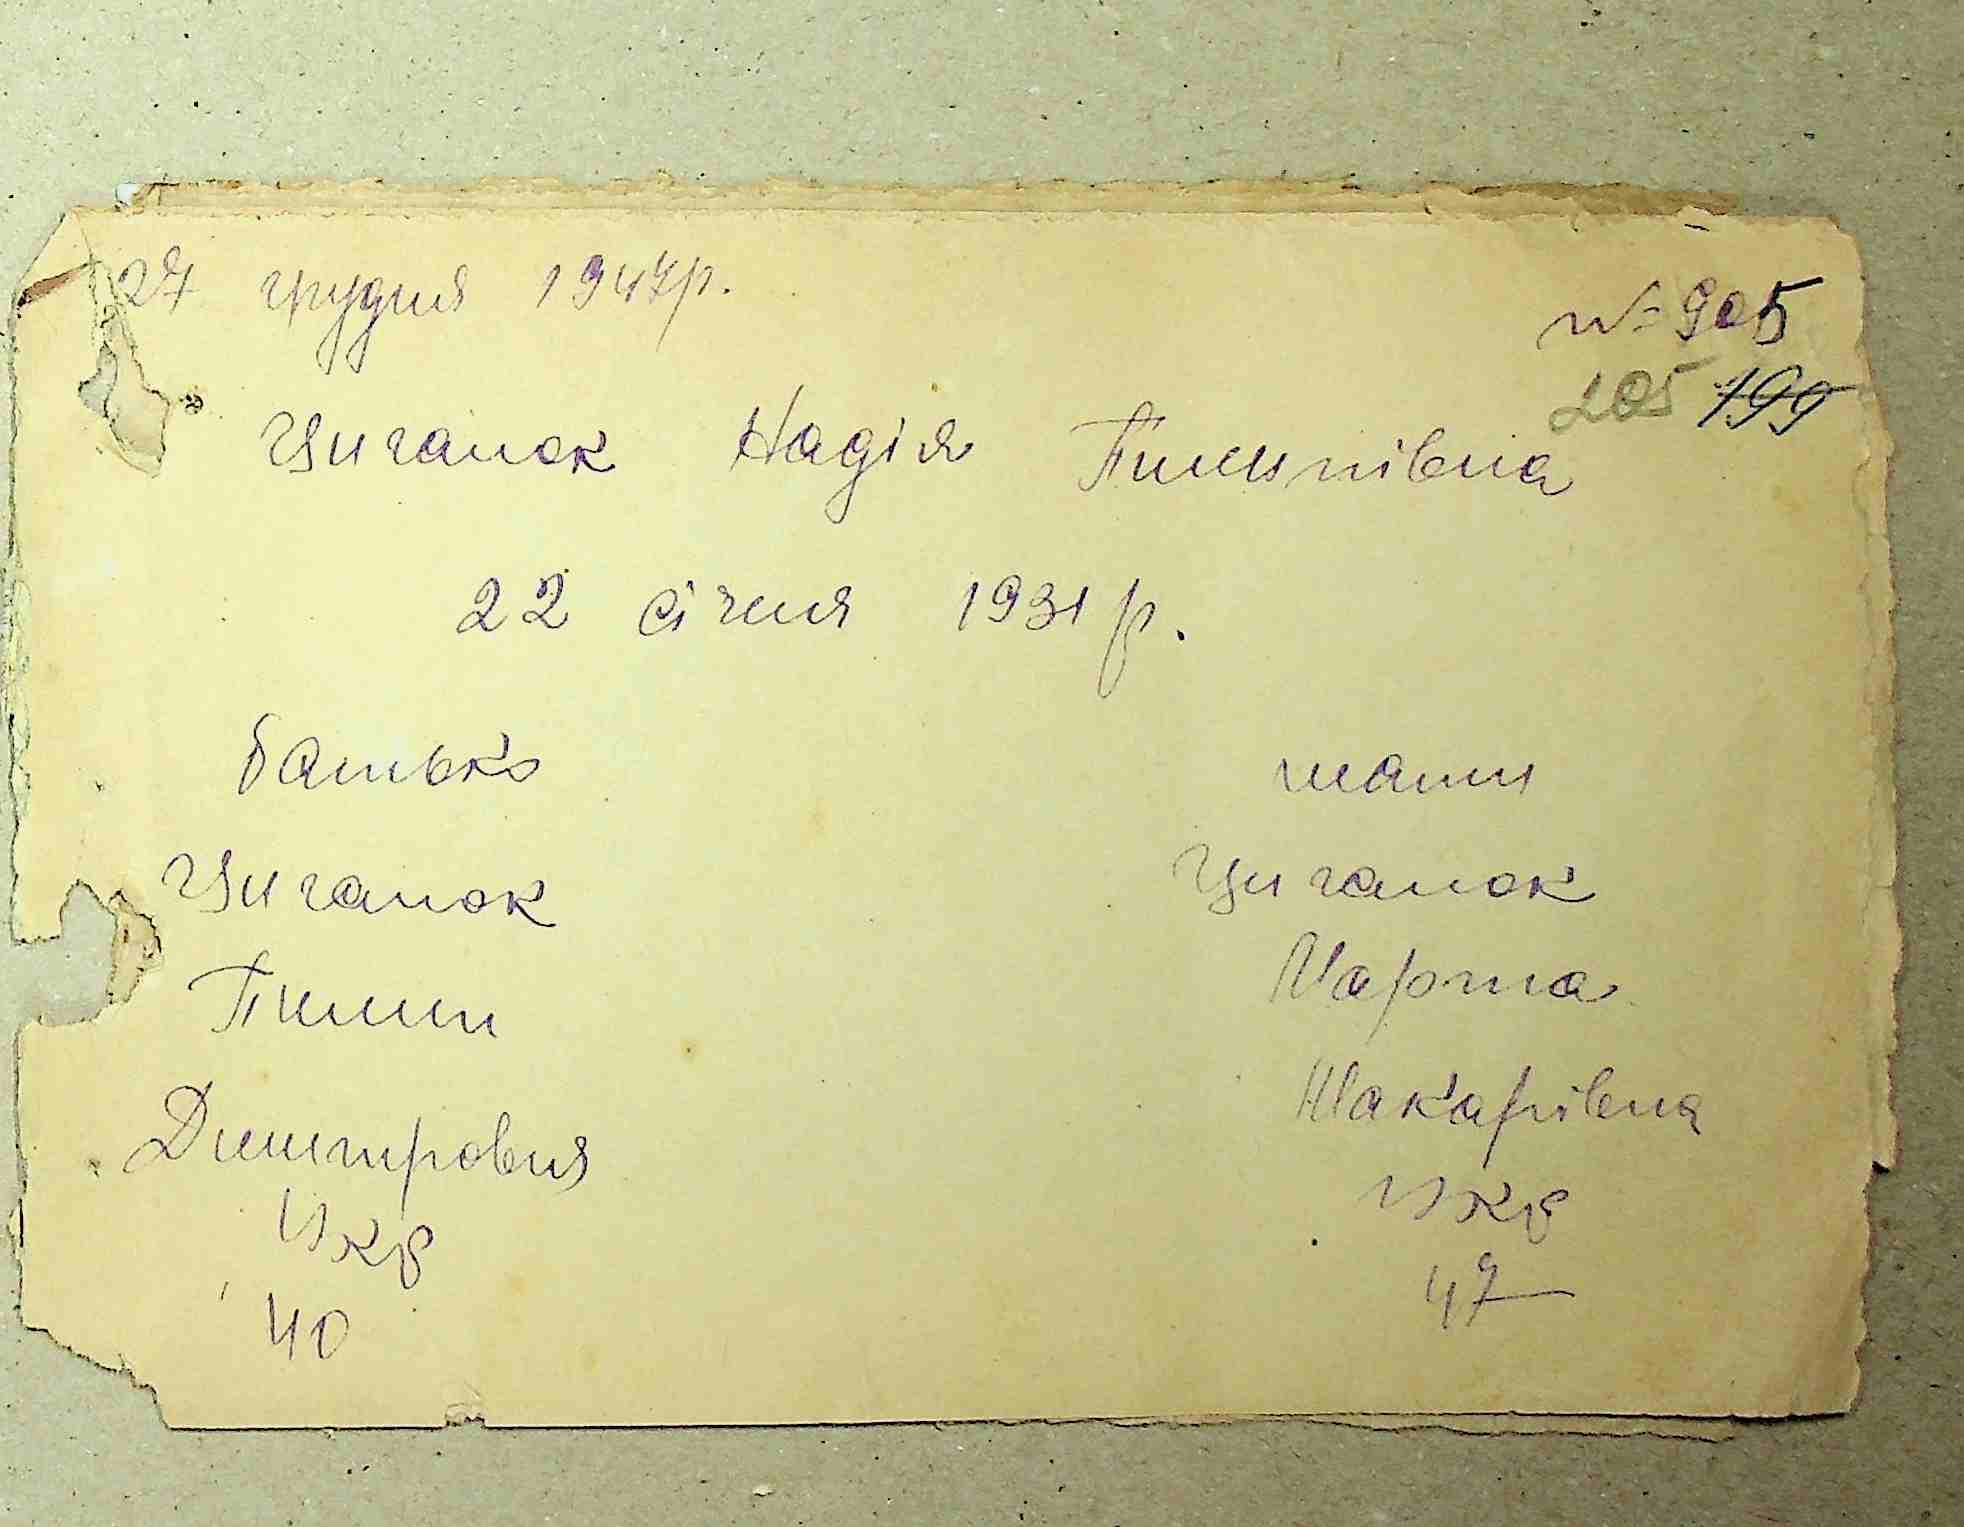 27 грудня 1947р.
№ 905
205 199
Циганок Надія Пилипівна
22 січня 1931 р.
батько
мати
Циганок
Циганок
Пилип
Марта
Дмитровия
Макарівна
Укр
Укр
40
47